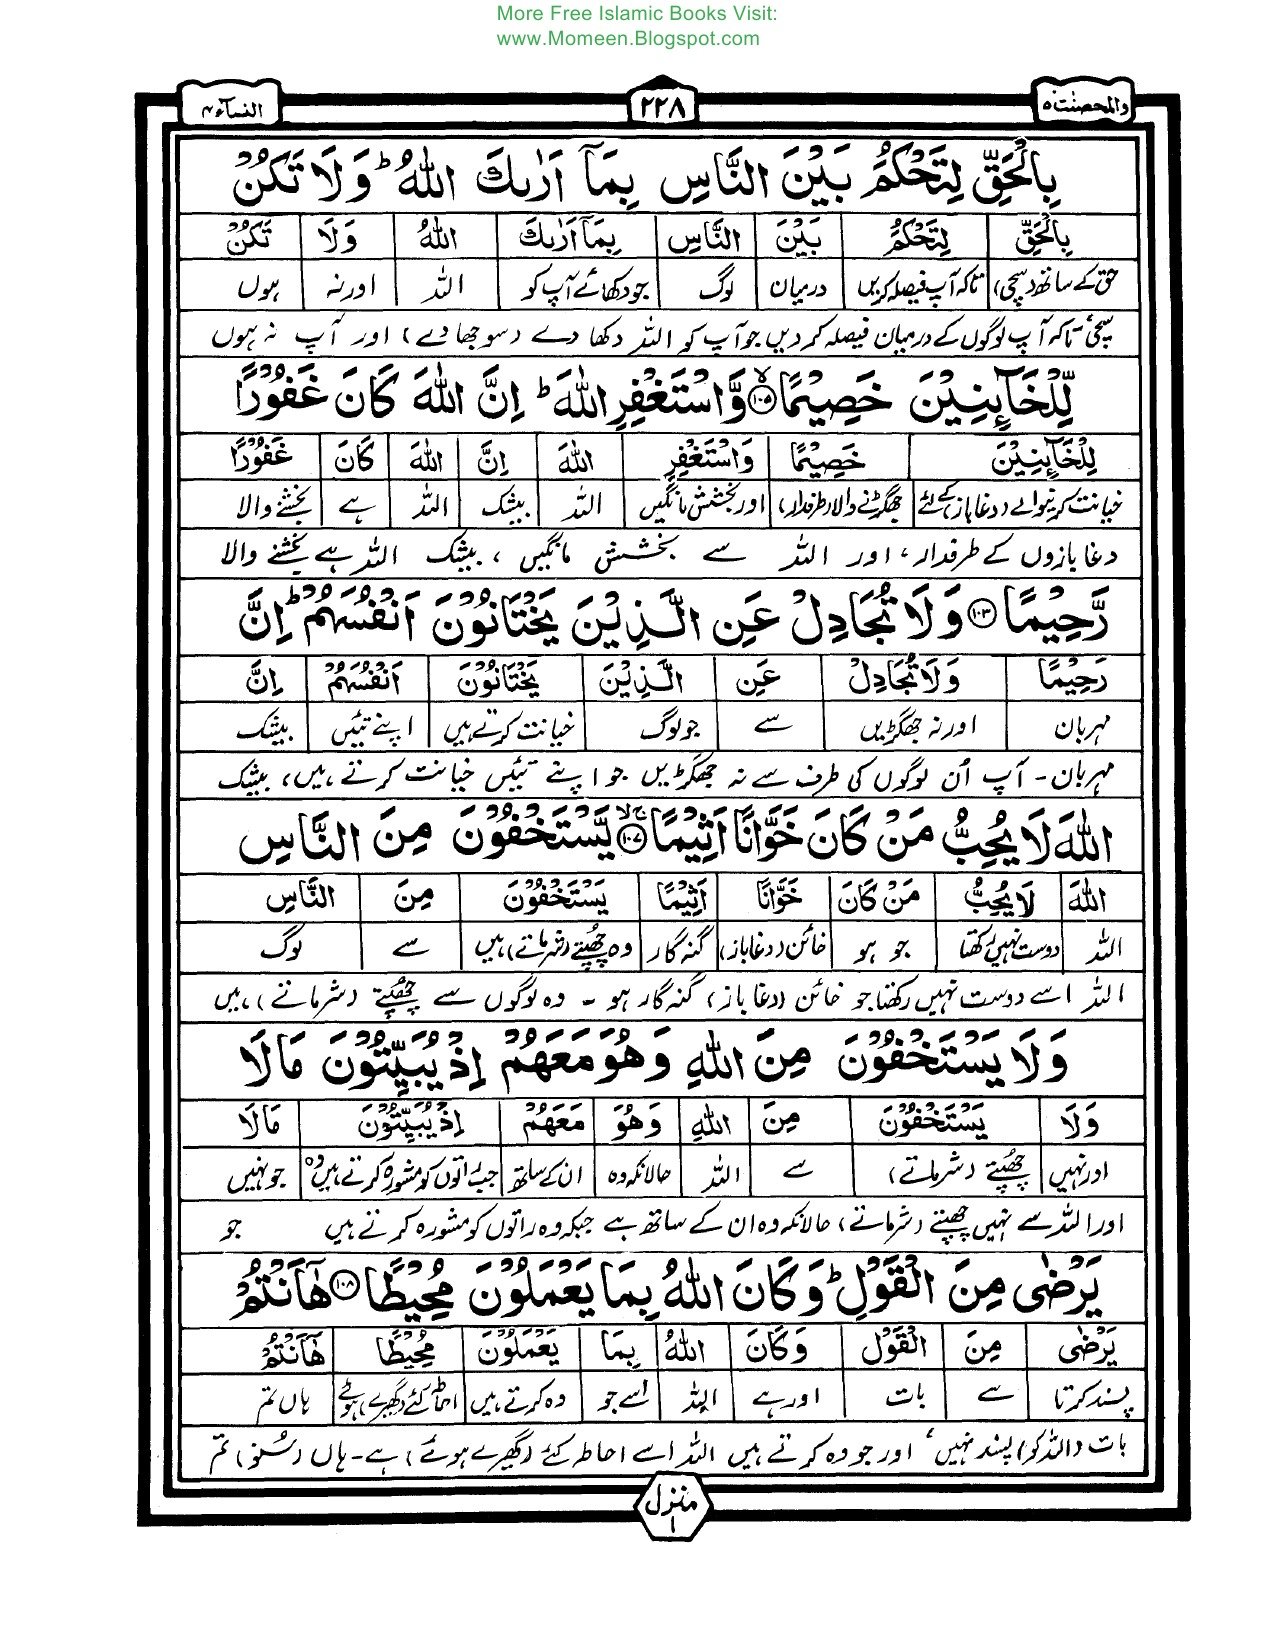 More Free Islamic Books Visit:
www.Momeen.Blogspot.com
والمحصنٰت ۵ ۲۲۸ النسآء ۴
بِالْحَقِّ لِتَحْكُمَ بَيْنَ النَّاسِ بِمَآ اَرٰىكَ اللّٰهُ ؕ وَلَا تَكُنْ
بِالْحَقِّ لِتَحْكُمَ بَيْنَ النَّاسِ بِمَآ اَرٰىكَ اللّٰهُ وَلَا تَكُنْ
حق کے ساتھ (سچی) تاکہ آپ فیصلہ کریں درمیان لوگ جو دکھائے آپ کو اللہ اور نہ ہوں
سچی، تاکہ آپ لوگوں کے درمیان فیصلہ کر دیں جو آپ کو اللہ دکھا دے (سوجھا دے) اور آپ نہ ہوں
لِّلْخَآئِنِيْنَ خَصِيْمًا ۙ۱۰۵ وَّاسْتَغْفِرِ اللّٰهَ ؕ اِنَّ اللّٰهَ كَانَ غَفُوْرًا
لِلْخَآئِنِيْنَ خَصِيْمًا وَاسْتَغْفِرِ اللّٰهَ اِنَّ اللّٰهَ كَانَ غَفُوْرًا
خیانت کرنیوالے (دغا باز) کیلئے جھگڑنے والا (طرفدار) اور بخشش مانگیں اللہ بیشک اللہ ہے بخشنے والا
دغا بازوں کے طرفدار، اور اللہ سے بخشش مانگیں، بیشک اللہ ہے بخشنے والا
رَّحِيْمًا ۱۰۳ وَلَا تُجَادِلْ عَنِ الَّذِيْنَ يَخْتَانُوْنَ اَنْفُسَهُمْ ؕ اِنَّ
رَحِيْمًا وَلَا تُجَادِلْ عَنِ الَّذِيْنَ يَخْتَانُوْنَ اَنْفُسَهُمْ اِنَّ
مہربان اور نہ جھگڑیں سے جو لوگ خیانت کرتے ہیں اپنے تئیں بیشک
مہربان - آپ اُن لوگوں کی طرف سے نہ جھگڑیں جو اپنے تئیں خیانت کرتے ہیں، بیشک
اللّٰهَ لَا يُحِبُّ مَنْ كَانَ خَوَّانًا اَثِيْمًا ۚۙ۱۰۷ يَّسْتَخْفُوْنَ مِنَ النَّاسِ
اللّٰهَ لَا يُحِبُّ مَنْ كَانَ خَوَّانًا اَثِيْمًا يَسْتَخْفُوْنَ مِنَ النَّاسِ
اللہ دوست نہیں رکھتا جو ہو خائن (دغا باز) گنہ گار وہ چھپتے (شرماتے) ہیں سے لوگ
اللہ اسے دوست نہیں رکھتا جو خائن (دغا باز) گنہ گار ہو - وہ لوگوں سے چھپتے (شرماتے) ہیں
وَلَا يَسْتَخْفُوْنَ مِنَ اللّٰهِ وَهُوَ مَعَهُمْ اِذْ يُبَيِّتُوْنَ مَا لَا
وَلَا يَسْتَخْفُوْنَ مِنَ اللّٰهِ وَهُوَ مَعَهُمْ اِذْ يُبَيِّتُوْنَ مَا لَا
اور نہیں چھپتے (شرماتے) سے اللہ حالانکہ وہ ان کے ساتھ جب راتوں کو مشورہ کرتے ہیں وہ جو نہیں
اور اللہ سے نہیں چھپتے (شرماتے) حالانکہ وہ ان کے ساتھ ہے جبکہ وہ راتوں کو مشورہ کرتے ہیں جو
يَرْضٰى مِنَ الْقَوْلِ ؕ وَكَانَ اللّٰهُ بِمَا يَعْمَلُوْنَ مُحِيْطًا ۱۰۸ هٰٓاَنْتُمْ
يَرْضٰى مِنَ الْقَوْلِ وَكَانَ اللّٰهُ بِمَا يَعْمَلُوْنَ مُحِيْطًا هٰٓاَنْتُمْ
پسند کرتا سے بات اور ہے اللہ اسے جو وہ کرتے ہیں احاطہ کئے (گھیرے) ہوئے ہاں تم
بات (اللہ کو) پسند نہیں، اور جو وہ کرتے ہیں اللہ اسے احاطہ کئے (گھیرے ہوئے) ہے - ہاں (سُنو) تم
منزل ۱